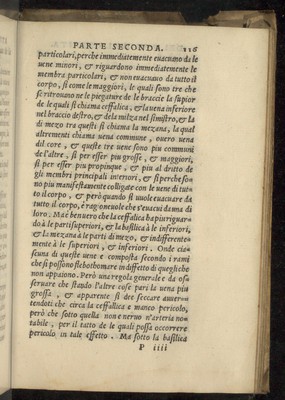 PARTE SECONDA. 116
particolari, perche immediatamente euacuano da le
uene minori, & riguardono immediatamente le
membra particolari, & non euacuano da tutto il
corpo, si come le maggiori, le quali sono tre che
se ritrouano ne le piegature de le braccie la supior
de le quali si chiama ceffalica, & la uena inferiore
nel braccio destro, & de la milza nel sinistro, & la
di mezo tra questi si chiama la mezana, la qual
altrementi chiama uena commune, ouero uena
del core, & queste tre uene sono piu communi
de l'altre, si per esser piu grosse, & maggiori,
si per esser piu propinque, & piu al dritto de
gli membri principali interiori, & si perche son
no piu manifestamente colligate con le uene di tut
to il corpo, & però quando si uuole euacuare da
tutto il corpo, è ragioneuole che s'euacui da una di
loro. Ma è ben uero che la ceffalica ha piu riguar-
do à le parti superiori, & la basilica à le inferiori,
& la mezana à le parti di mezo, & indifferente-
mente à le superiori, & inferiori. Onde cia-
scuna di queste uene è composta secondo i rami
che si possono flebothomare in diffetto di quegli che
non appaiono. Però una regola generale è da os-
seruare che stando l'altre cose pari la uena piu
grossa, & apparente si dee seccare auuer-
tendoti che circa la ceffallica è manco pericolo,
però che sotto quella non è neruo n'arteria no-
tabile, per il tatto de le quali possa occorrere
pericolo in tale effetto. Ma sotto la basilica
P iiii